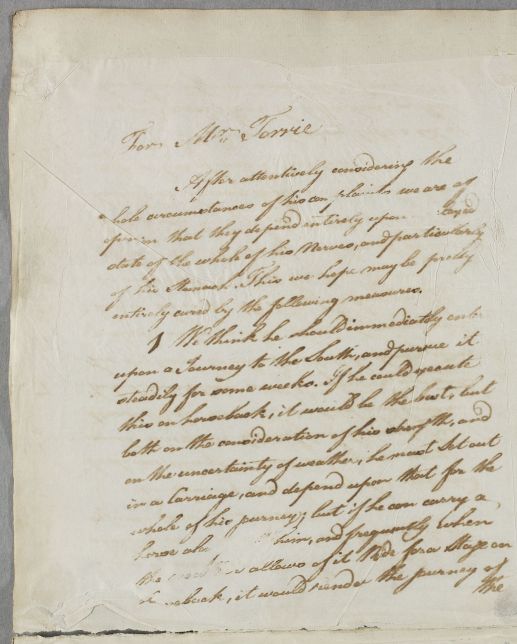 For Mr. Torrie
After attentively considering the
hole circumstances of his complaints we are of
opinion that they depend entirely upon
state of the whole of his Nerves, and particularly
of his Stomach. This we hope may be pretty
entirely cured by the following measures.
1 We think he should immediately ent
upon a Journey to the South, and pursue it
steadily for some weeks. If he could execute
this on horseback, it would be the best, but
both on the consideration of his strength, and
on the uncertainty of weather, he must Set out
in a Carriage, and depend upon that for the
whole of his journey; but if he can carry a
horse alo him, and frequently when
the allows of it Ride for a Stage on
seback, it would render the journey of
the